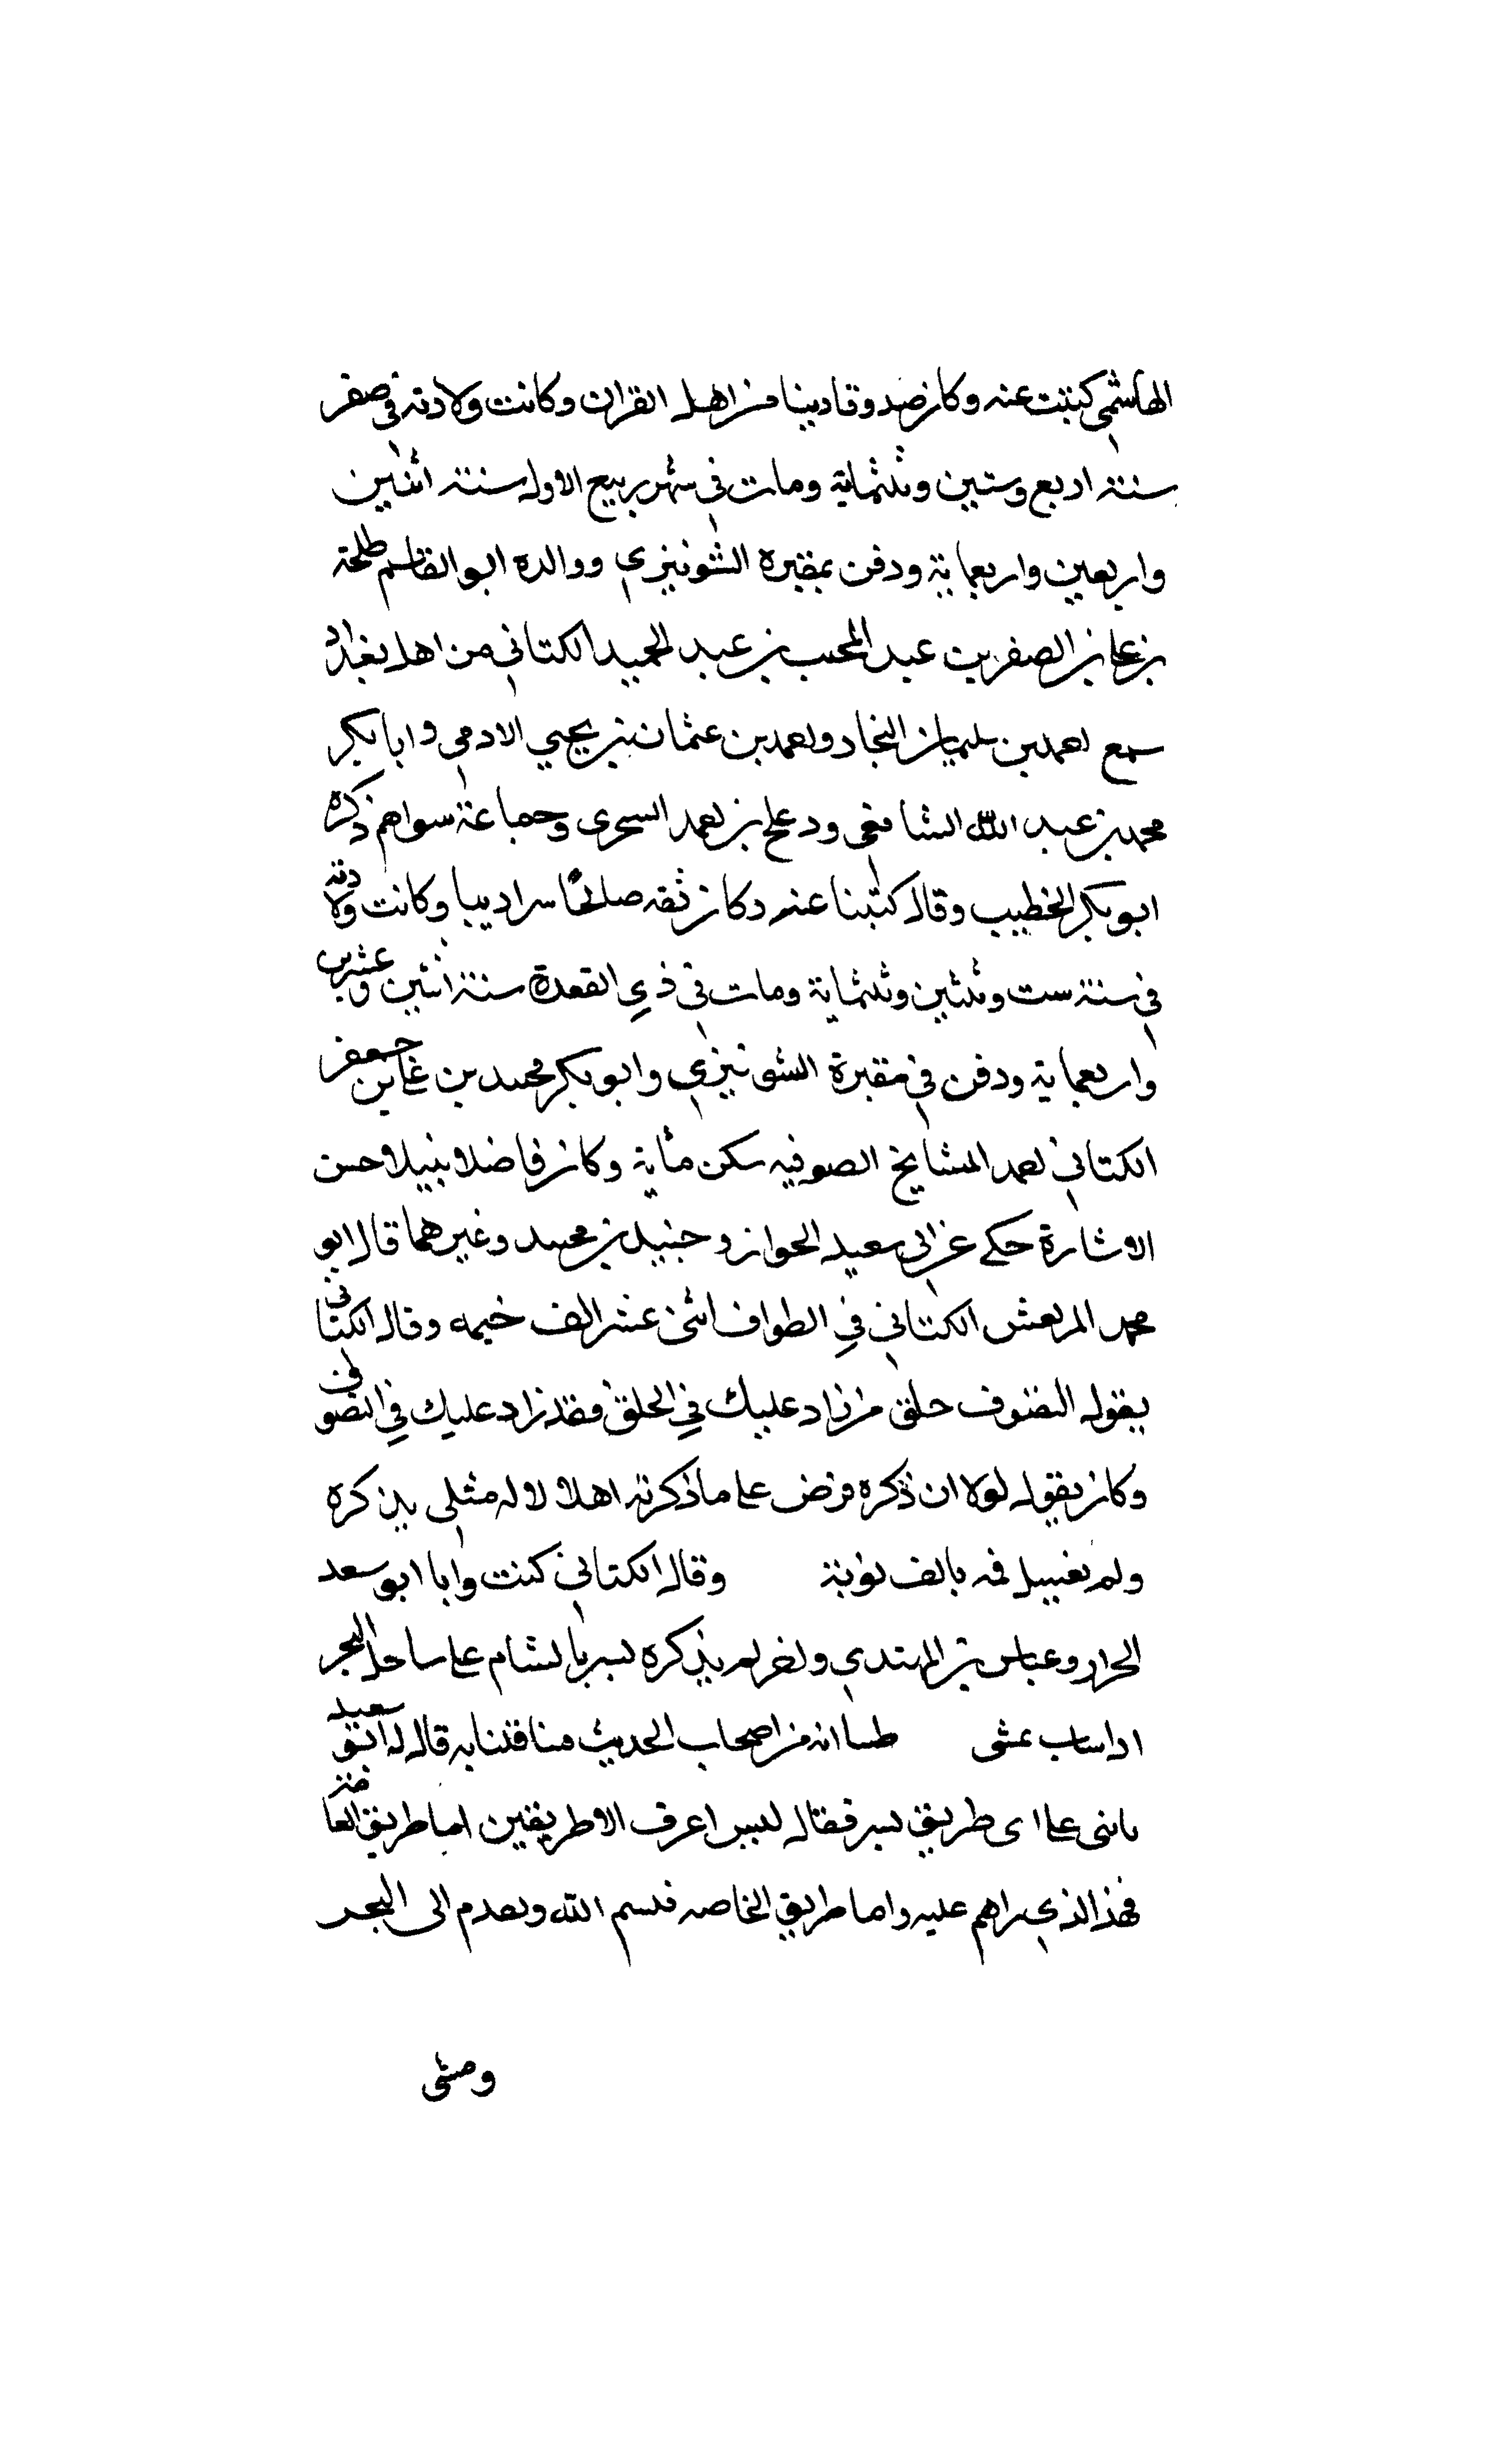 الهاشمي كتبت عنه وكان صدوقا دينا من اهل القران وكانت ولادته في صفر
سنة اربع وستين وثلثماية ومات في شهر ربيع الاول سنة اثنين
واربعين واربعماية ودفن بمقبرة الشونيزي ووالده ابو القاسم طلحة
بن علي بن الصقر بن عبد المجيب بن عبد الحميد الكتاني من اهل بغداد
سمع احمد بن سليمان النجاد واحمد بن عثمان بن يحيي الادمي وابا بكر
محمد بن عبد الله الشافعي ودعلج بن احمد السجزى وجماعة سواهم ذكره
ابو بكر الخطيب وقال كتبنا عنه وكان ثقه صالحا ديبا وكانت ولادته
في سنة ست وثلثين وثلثماية ومات في ذي القعدة سنة اثنين وعشرين
واربعماية ودفن في مقبرة الشونيزي وابو بكر محمد بن علي بن جعفر
الكتاني احد المشايخ الصوفيه سكن مكة وكان فاضلا نبيلا حسن
الاشارة حكي عن ابي سعيد الخراز وجنيد بن محمد وغيرهما قال ابو
محمد المرتعش الكتاني في الطواف اثنى عشر الف ختمه وقال الكتاني
يقول التصوف خلق من زاد عليك في الخلق فقد زاد عليك في التصوف
وكان يقول لولا ان ذكره فرض علي ما ذكرته اجلالا له مثلي يذكره
ولم يغسل فمه بالف توبة وقال الكتاني كنت وابا ابو سعد
الخراز وعباس بن المهتدي واخر لم يذكره نسير بالشام علي ساحل البحر
اذا شاب يمشى ظننا انه من اصحاب الحديث فتثاقلنا به قال له ابو سعيد
يا فتى علي اي طريق تسير فقال ليس اعرف الا طريقين اما طريق العامة
فهذا الذي تراهم عليه واما طريق الخاصه فبسم الله وتقدم الى البحر
ومشى